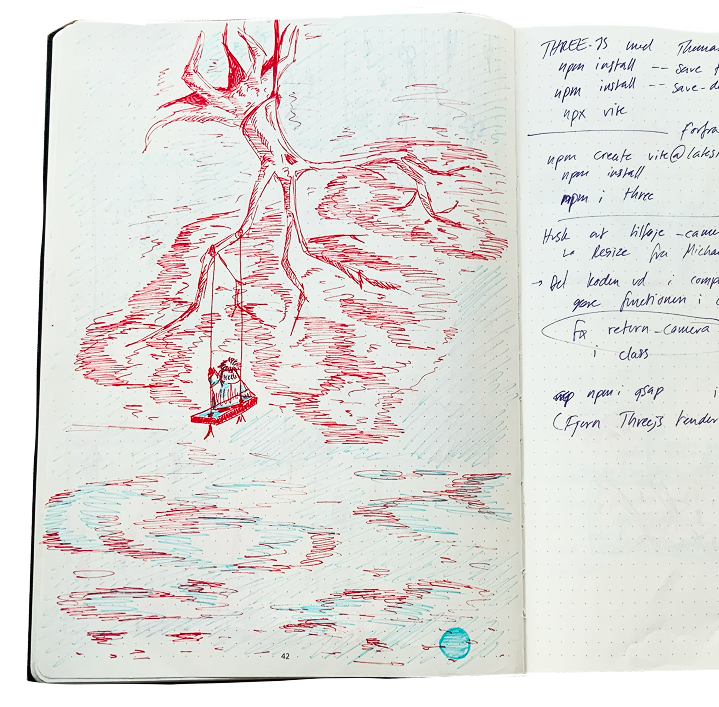 42
THREE.JS med Thoma
npm install -- save t
npm install -- save-de
npx vite
forfra
npm create vite@lates
npm install
npm i three
Husk at tilføje _came
Resize fra Micha
→ Del koden ud i comp
functionen i
Fx return _camera
i class
npm i gsap i
(Fjern Threejs render